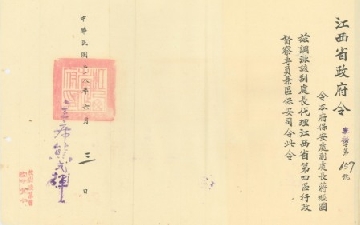 江西省政府令
令本府保安處副處長蔣經國
茲調派該副處長代理江西省第四區行政
督察專員兼區保安司令此令
主席熊式輝
中華民國二十八年六月三日